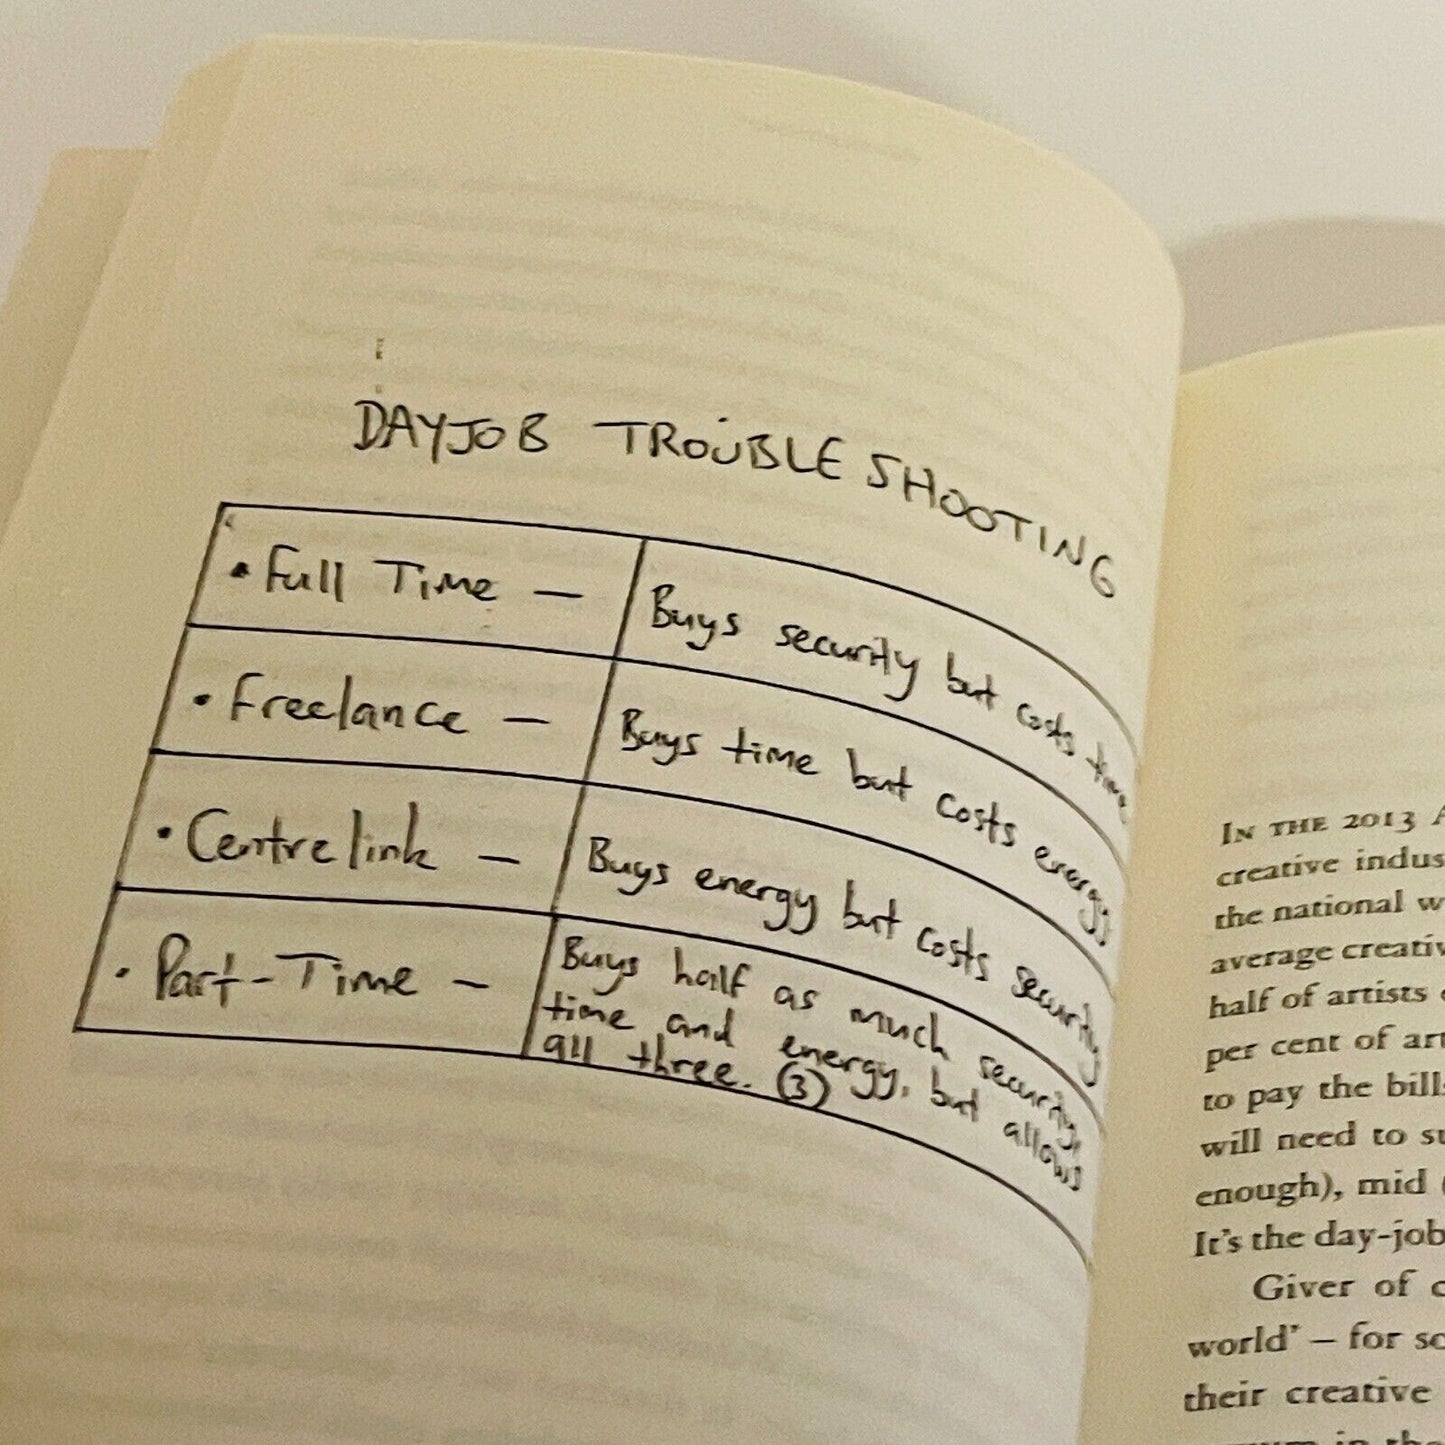 DAYJOB TROUBLESHOOTING
• Full Time — Buys security but costs time
• Freelance — Buys time but costs energy
• Centrelink — Buys energy but costs security
• Part-Time — Buys half as much security,
time and energy, but allows
all three. (3)
IN THE 2013
creative
the national
average
half of artists
per cent of
to pay the
will need to
enough), mid
It's the day-job
Giver of
world' – for
their creative
in